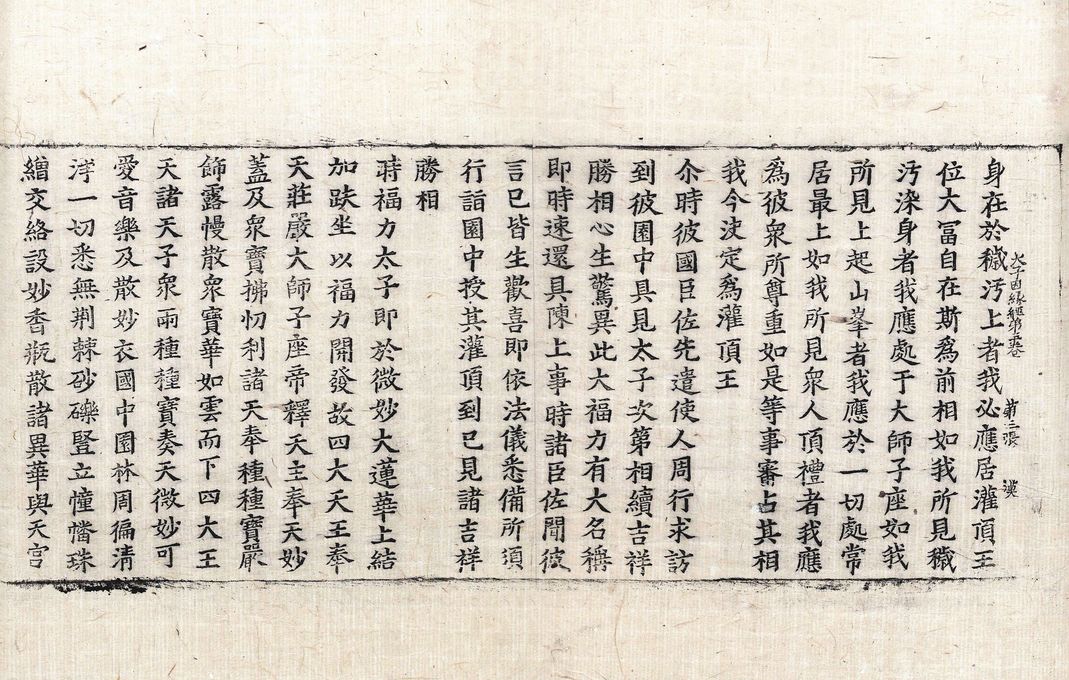 身在於穢汚上者我必應居灌頂王
太子因緣經第卷 第三張 漠
位大冨自在斯爲前相如我所見穢
汚染身者我應處于大師子座如我
所見上起山峯者我應於一切處常
居最上如我所見衆人頂禮者我應
爲彼衆所尊重如是等事審占其相
我今决定爲灌頂王
尒時彼國臣佐先遣使人周行求訪
到彼園中具見太子次第相續吉祥
勝相心生驚異此大福力有大名稱
即時速還具陳上事時諸臣佐聞彼
言已皆生歡喜即依法儀悉備所須
行詣園中授其灌頂到已見諸吉祥
勝相
時福力太子即於微妙大蓮華上結
加趺坐以福力開發故四大天王奉
天莊嚴大師子座帝釋天主奉天妙
蓋及衆寶拂忉利諸天奉種種寶嚴
飾露幔散衆寶華如雲而下四大王
天諸天子衆雨種種寶奏天微妙可
愛音樂及散妙衣國中園林周徧清
淨一切悉無荆棘砂礫竪立幢幡珠
繒交絡設妙香瓶散諸異華與天宮